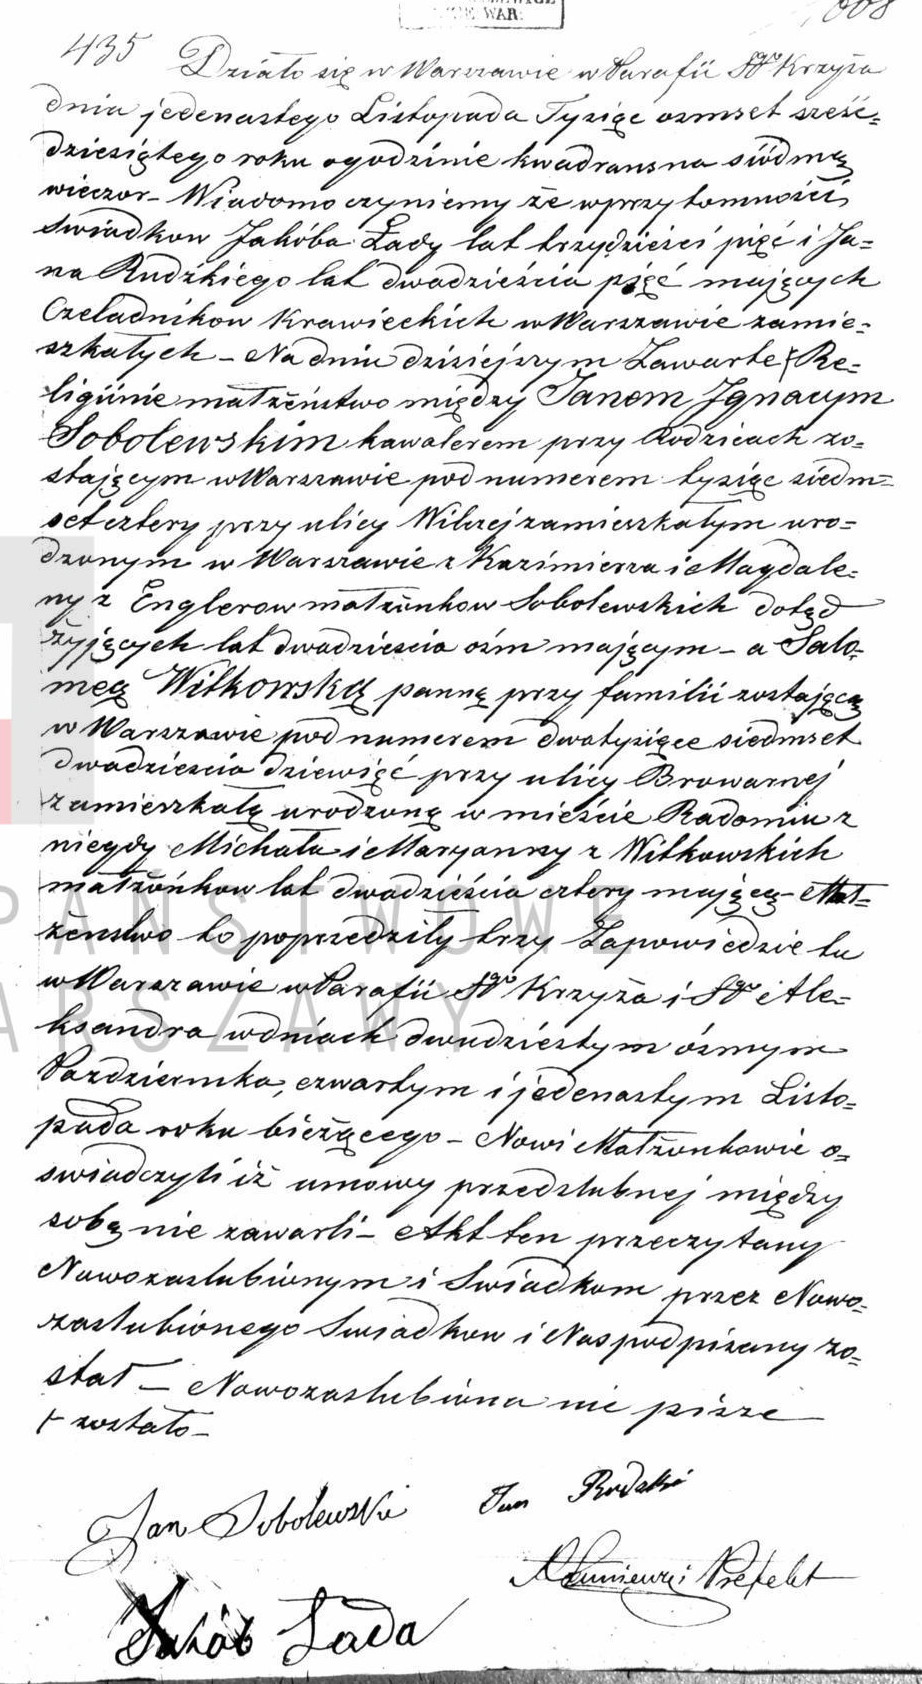 WAR:
1008
435 Działo się w Warszawie w Parafii Sgo Krzyża
dnia jedenastego Listopada Tysiąc osmset sześć=
dziesiątego roku ogodzinie kwadrans na siódmą
wieczor – Wiadomo czyniemy że wprzytomności
swiadkow Jakóba Łady lat trzydzieści pięć i Ja=
na Rudzkiego lat dwadzieścia pięć mających
Czeladnikow Krawieckich w Warszawie zamie=
szkałych – Na dniu dzisiejszym Zawarte + Re=
ligiinie małżeństwo między Janem Ignacym
Sobolewskim kawalerem przy Rodzicach zo=
stającym w Warszawie pod numerem tysiąc siedm=
set cztery przy ulicy Wilczej zamieszkałym uro=
dzonym w Warszawie z Kazimierza i Magdale=
ny z Englerow małżonkow Sobolewskich dotąd
żyjących lat dwadziescia ośm mającym – a Salo=
meą Witkowską panną przy familii zostającą
w Warszawie pod numerem dwatysiące siedmset
dwadziescia dziewięć przy ulicy Browarnej
zamieszkałą urodzoną w mieście Radomiu z
niegdy Michała i Maryanny z Witkowskich
małżonkow lat dwadzieścia cztery mającą – Mał=
żenstwo to poprzedziły trzy Zapowiedzie tu
w Warszawie w Parafii Sgo Krzyża i Sgo Ale=
ksandra w dniach dwudziestym ósmym
Pazdziernika, czwartym i jedenastym Listo=
pada roku bieżącego – Nowi Małżonkowie o=
swiadczyli iż umowy przedslubnej między
sobą nie zawarli – Akt ten przeczytany
Nowozaslubionym i Swiadkom przez Nowo=
zaslubionego Swiadkow i Nas podpisany zo=
stał – Nowozaslubiona nie pisze
+ zostało –
Jan Sobolewski Jan Rudzki
Prefekt
Jakób Łada
PAŃSTWOWE
WARSZAWY